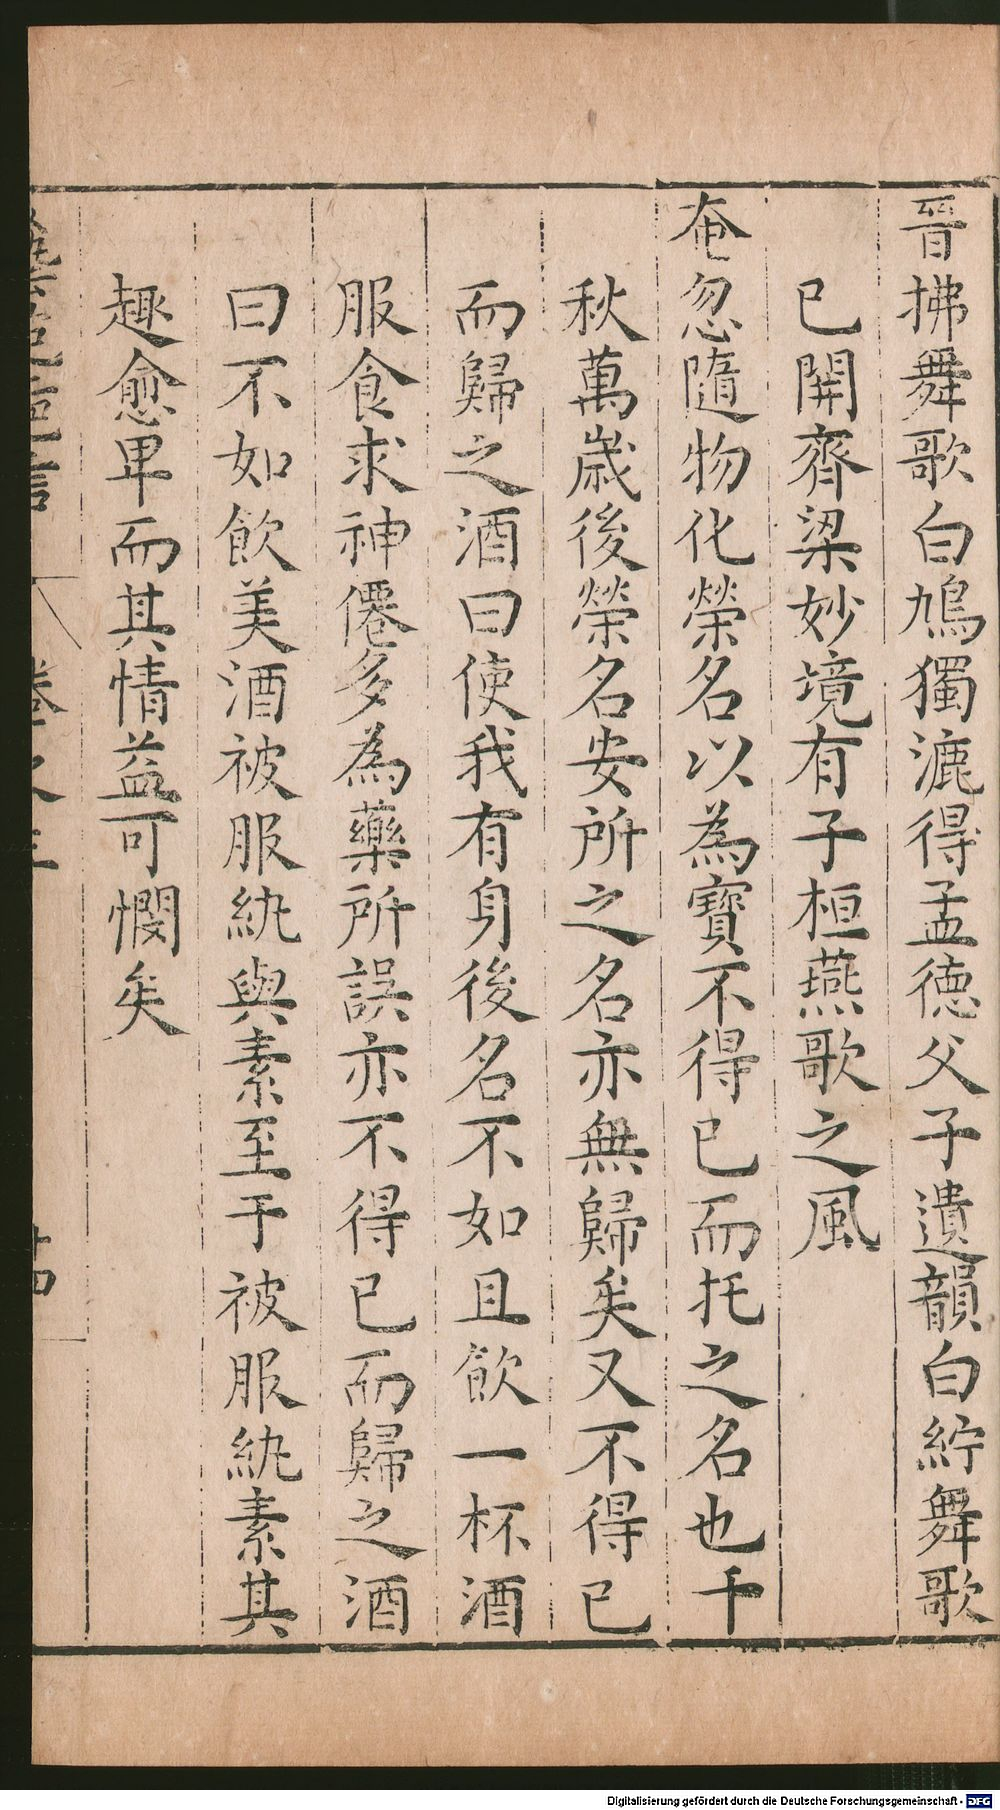 晉拂舞歌白鳩獨漉得孟德父子遺韻白紵舞歌
已開齊梁妙境有子桓燕歌之風
奄忽隨物化榮名以為寶不得已而托之名也千
秋萬歲後榮名安所之名亦無歸矣又不得已
而歸之酒曰使我有身後名不如且飲一杯酒
服食求神僊多為藥所誤亦不得已而歸之酒
曰不如飲美酒被服紈與素至于被服紈素其
趣愈卑而其情益可憫矣
卷之
Digitalisierung gefördert durch die Deutsche Forschungsgemeinschaft - DFG